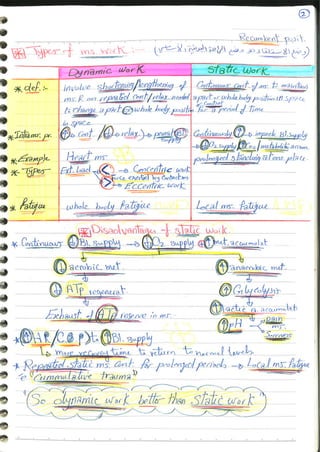 2
Recumbent posit.
* Types of ms. work :-
Dynamic work
Static work
* def :-
involve shortening/lengthening of
ms. & ms. repeated cont/relax. needed
to change a part or whole body position
in space
Continuous cont. of ms. to maintain
a part or whole body position in space
for a period of time
* Intramc. pr.
cont. relax. Bl. supply
Continuously impede Bl. supply
O2 supply metabolic accum.
* Example
Heart ms.
prolonged standing at one place
* Types
Ext. Load < Concentric work
force exerted by contraction
> Eccentric work
* Fatigue
whole body fatigue
Local ms. Fatigue
* Disadvantages of static work
* Continuous Bl. supply → O2 supply & met. accumulat
aerobic met.
anaerobic met.
ATP regenerat.
Glycolysis
Exhaust of ATP reserve in ms.
lactic a. accumulat
pH pain ms. Soreness
* HR/COP) to Bl. supply
more recovery time to return to normal levels
* Repeated static ms. cont. for prolonged periods → Local ms. fatigue
"Cummulative trauma"
"So dynamic work better than static work"